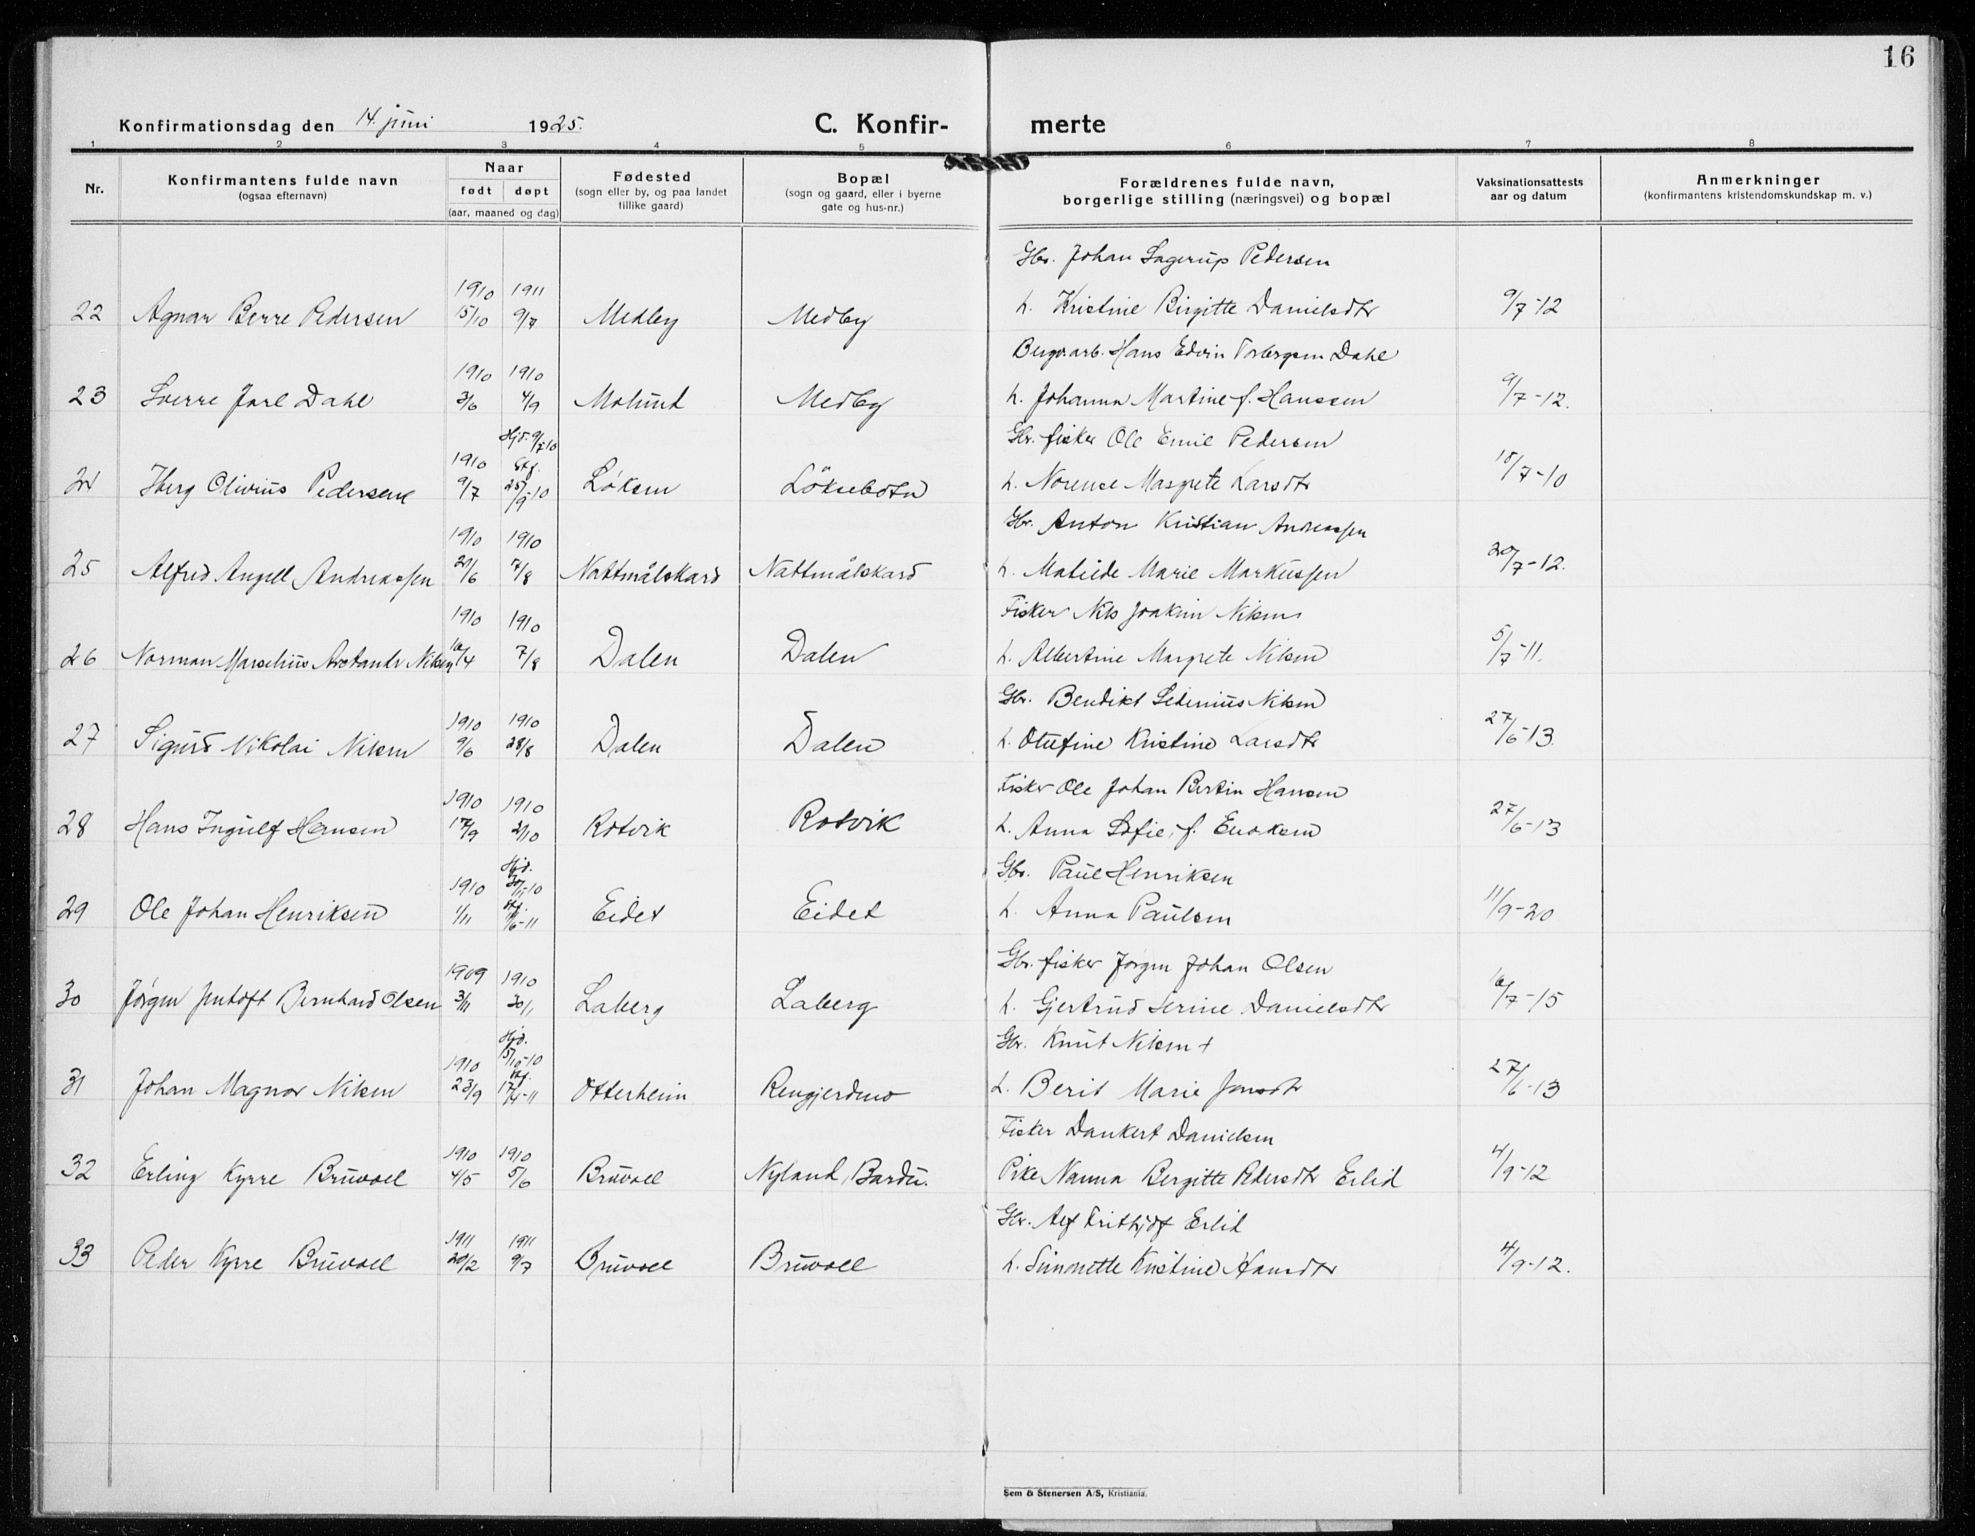 16
Konfirmationsdag den 14. juni 1925.
C. Konfir- merte
1 2 3 4 5 6 7 8
Nr.
Konfirmantens fulde navn
(ogsaa efternavn)
Naar
født døpt
(aar, maaned og dag)
Fødested
(sogn eller by, og paa landet
tillike gaard)
Bopæl
(sogn og gaard, eller i byerne
gate og hus-nr.)
Forældrenes fulde navn,
borgerlige stilling (næringsvei) og bopæl
Vaksinationsattests
aar og datum
Anmerkninger
(konfirmantens kristendomskundskap m. v.)
Gbr. Johan Lagerup Pedersen
1910 1911
22 Agnar Berre Pedersen 15/10 9/7 Medby Medby h. Kristine Birgitte Danielsdtr 9/7-12
Bergv.arb. Hans Edvin Torbergsen Dahl
1910 1910
23 Sverre Jarl Dahl 3/6 4/9 Medby h. Johanna Martine f. Hanssen 9/7-12.
Hjd. 9/7-10
Gbr. fisker Ole Emil Pedersen
1910 Stf.
24 Iberg Olivius Pedersen 9/7 25/9-10 Løksen Löksebotn h. Norense Margrete Larsdtr 15/7-10
Gbr. Anton Kristian Andreassen
1910 1910
25 Alfred Angell Andreassen 20/6 7/8 Nattmålskard Nattmålskard h. Matilde Marie Markussen 20/7-12.
Fisker Nils Joakim Nilsen
1910 1910
26 Norman Marselius Nilsen 10/4 7/8 Dalen Dalen h. Albertine Margrete Nilsen 5/7-11.
Gbr. Bendikt Sedenius Nilsen
1910 1910
27 Sigurd Nikolai Nilsen 9/6 28/8 Dalen Dalen h. Olufine Kristine Larsdtr 27/6-13.
Fisker Ole Johan Bertin Hansen
1910 1910
28 Hans Ingulf Hansen 17/9 2/10 Rotvik Rotvik h. Anna Sofie, f. Enoksen 27/6-13
Hjd.
Gbr. Paul Henriksen
1910 30/11-10
Stf.
29 Ole Johan Henriksen 1/11 11/6-11 Eidet Eidet h. Anna Paulsen 11/9-20
Gbr. fisker Jørgen Johan Olsen
1909 1910
30 Jørgen Jentoft Bernhard Olsen 3/11 30/1 Laberg Laberg h. Gjertrud Serine Danielsdtr 16/7-15
Hjd.
Gbr. Knut Nilsen +
1910 15/10-10
Stf.
31 Johan Magnar Nilsen 23/9 17/4-11 Otterheim Rengjerdmo h. Berit Marie Jonsdtr 27/6-13
Fisker Dankert Danielsen
1910 1910
32 Erling Kyrre Bruvoll 4/5 5/6 Bruvoll Nyland, Bardu. Pike Nanna Bergitte Pedersdtr Erlid 4/9-12
Gbr. Alf Frithjof Erlid
1911 1911
33 Peder Kyrre Bruvoll 20/2 9/7 Bruvoll Bruvoll h. Simonette Kristine Hansdtr 4/9-12.
Sem & Stenersen A/S, Kristiania.